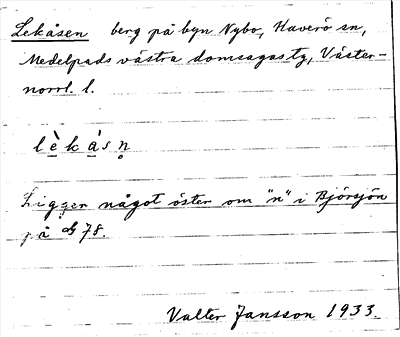 Lekåsen berg på byn Nybo, Haverö sn,
Medelpads västra domsagas tg, Väster-
norrl. l.
lèkåsn̥
Ligger något öster om "n" i Björsjön
på 78.
Valter Jansson 1933.